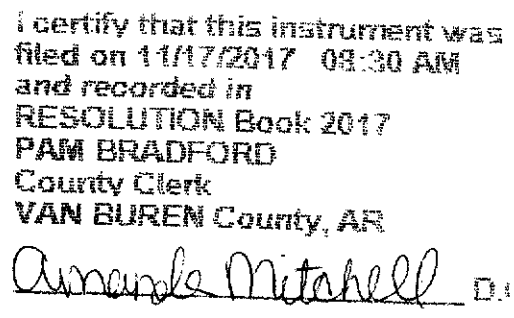 I certify that this instrument was
filed on 11/17/2017 08:30 AM
and recorded in
RESOLUTION Book 2017
PAM BRADFORD
County Clerk
VAN BUREN County, AR
Amanda Mitchell D.